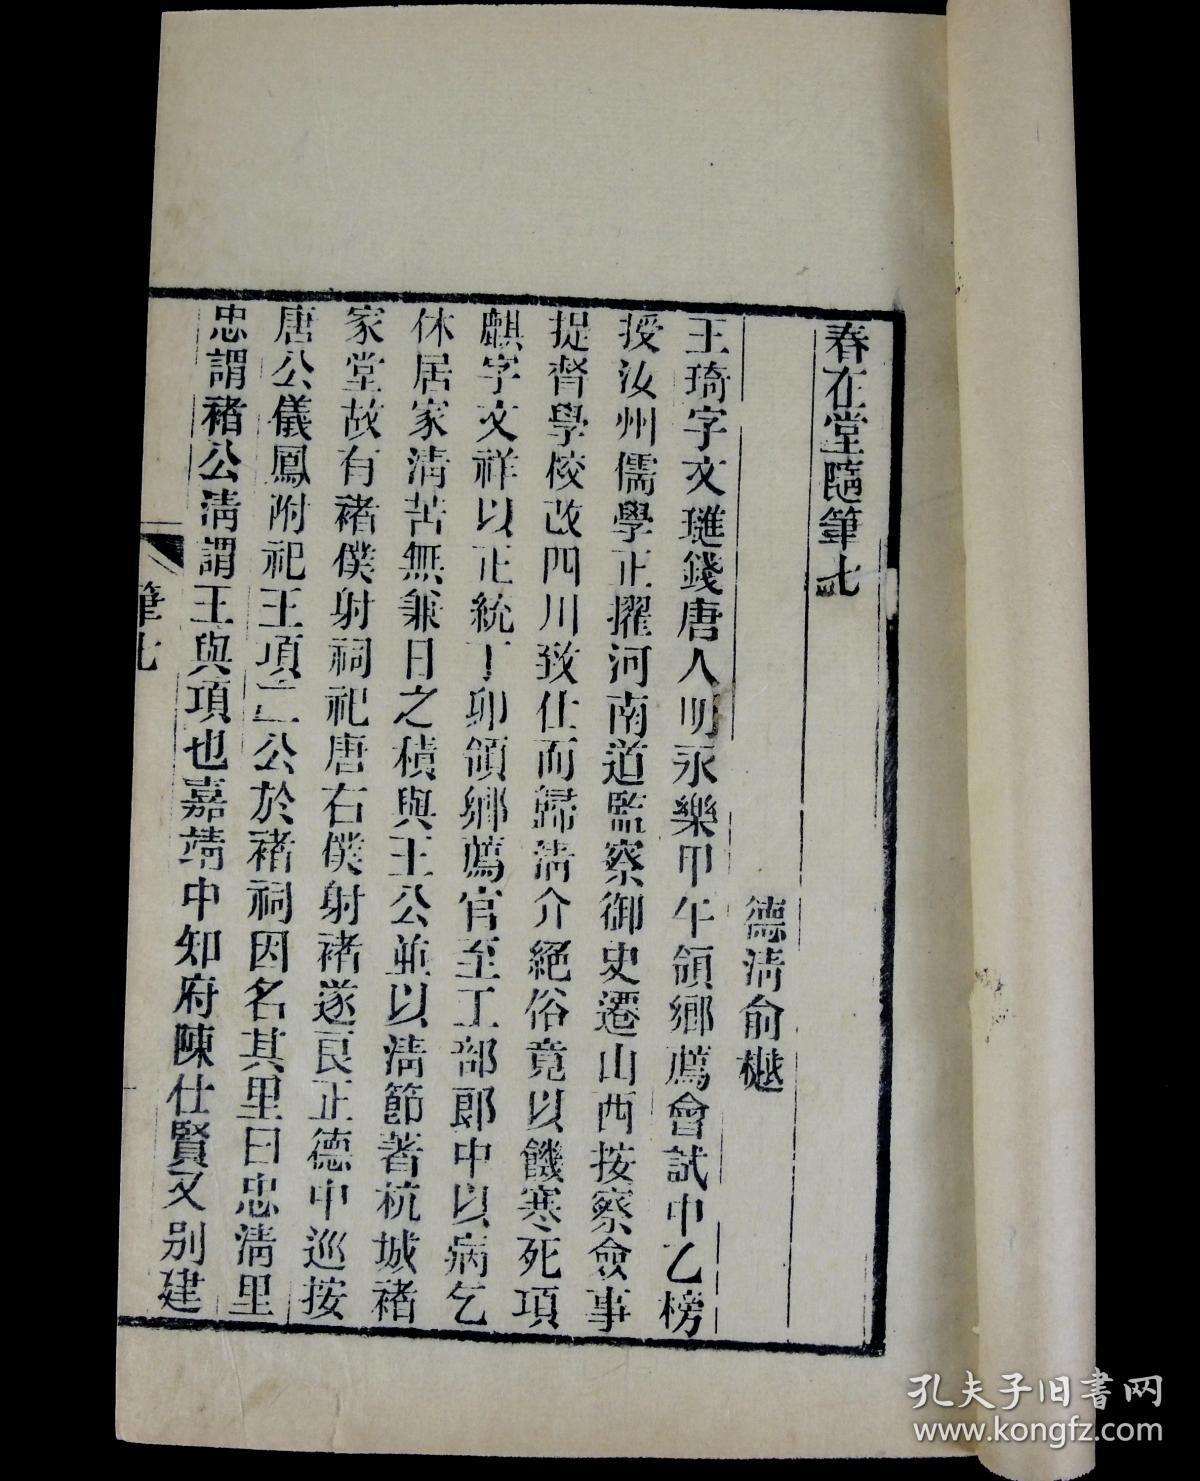 春在堂隨筆七
德清俞樾
王琦字文璡錢唐人明永樂甲午領鄉薦會試中乙榜
授汝州儒學正擢河南道監察御史遷山西按察僉事
提督學校改四川致仕而歸清介絕俗竟以饑寒死項
麒字文祥以正統丁卯領鄉薦官至工部郎中以病乞
休居家清苦無兼日之積與王公並以清節著杭城褚
家堂故有褚僕射祠祀唐右僕射褚遂良正德中巡按
唐公儀鳳附祀王項二公於褚祠因名其里曰忠清里
忠謂褚公清謂王與項也嘉靖中知府陳仕賢又別建
筆七
孔夫子旧書网
www.kongfz.com